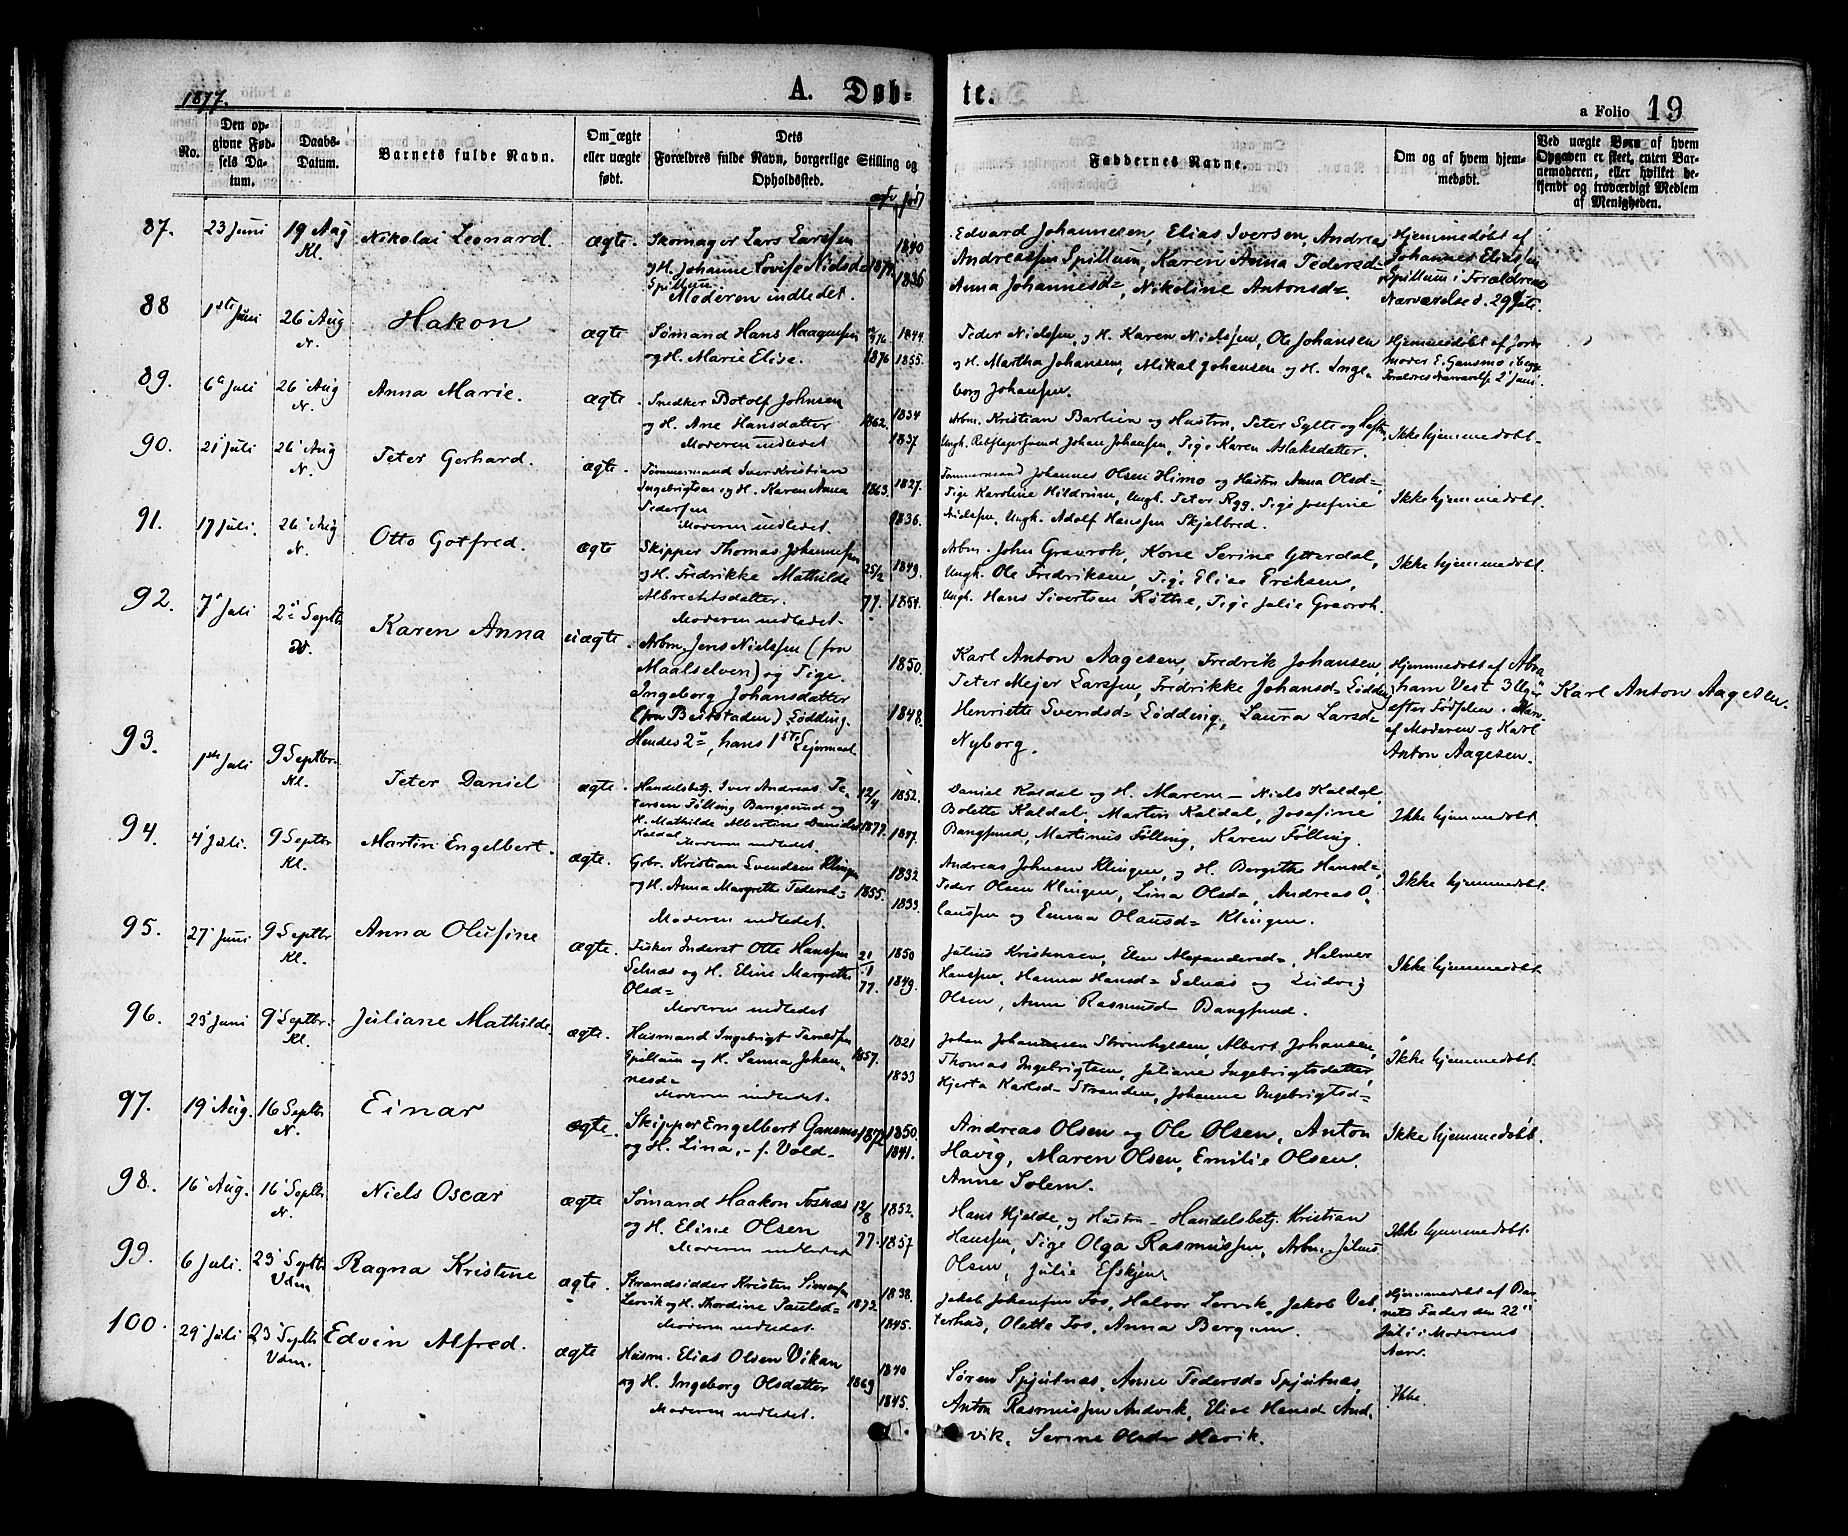 1877.
A. Døb-
te.
a Folio 19
No.
Den op-
givne Fød-
sels Da-
tum.
Daabs-
Datum.
Barnets fulde Navn.
Om ægte
eller uægte
født.
Dets
Forældres fulde Navn, borgerlige Stilling og
Opholdssted.
Faddernes Navne.
Om og af hvem hjem-
medøbt.
Ved uægte Børn af hvem
Opgaven er skeet, enten Bar-
nemoderen, eller hvilket be-
kjendt og troværdigt Medlem
af Menigheden.
87. 23 Juni 19 Aug Kl. Nikolai Leonard. ægte.
Skomager Lars Larssen 1840
og H. Johanne Lovise Nielsd= 1836
Spillum.
Moderen indledet.
Edvard Johannesen, Elias Iversen, Andreas
Andreassen Spillum, Karen Anna Pedersd=
Anna Johannesd=, Nikoline Antonsd=.
Hjemmedøbt af
Johannes Eliassen
Spillum i Forældrenes
Nærværelse d. 29 Juli.
88 1ste Juni 26 Aug N. Hakon ægte
Sømand Hans Haagensen 1844.
og H. Marie Elise. 1876 1855.
Peder Nielssen, og H. Karen Nielssen, Ole Johansen
og H. Martha Johansen, Mikal Johansen og H. Inge-
borg Johansen.
Hjemmedøbt af Jord-
moder E. Gansmo i begge
Forældres Nærværelse 2 Juni.
89. 6 Juli 26 Aug N. Anna Marie. ægte.
Snedker Botolf Johnsen 1834
og H. Ane Hansdatter 1862. 1837.
Moderen indledet
Arbm. Kristian Barlien og Hustru, Peter Sylte og Hustru,
Ungk. Johan Johansen, Pige Karen Aslaksdatter.
Ikke hjemmedøbt.
90. 21 Juli 26 Aug N. Peter Gerhard. ægte.
Tømmermand Iver Kristian 1827.
Ingebrigtsen og H. Karen Anna 1863.
Pedersen 1836.
Moderen indledet.
Tømmermand Johannes Olsen Himo og Hustru Anna Olsd=,
Pige Karoline Hildrum, Ungk. Peter Rygg, Pige Josefine
Nielsen, Ungk. Adolf Hanssen Skjelbred.
Ikke hjemmedøbt.
91. 17 Juli. 26 Aug N. Otto Gotfred. ægte
Skipper Thomas Johannesen 25/2 1849.
og H. Fredrikke Mathilde
Albrechtsdatter. 77. 1854.
Moderen indledet.
Arbm. John Gravrok, Kone Serine Ytterdal,
Ungk. Ole Fredriksen, Pige Elise Eriksen,
Ungk. Hans Sivertsen Røthe, Pige Julie Gravrok.
Ikke hjemmedøbt.
92. 7 Juli 2 Septbr. Karen Anna uægte.
Arbm. Jens Nielssen (fra 1850.
Maalselven) og Pige.
Ingeborg Johansdatter
(fra Beitstaden) Lødding. 1848.
Hendes 2=, hans 1ste Leiermaal
Karl Anton Aagesen, Fredrik Johansen,
Peter Mejer Larssen, Fredrikke Johansd= Lødding,
Henriette Svendsd= Lødding, Laura Larsd=
Nyborg.
Hjemmedøbt af Abra-
ham Vest 3 Uger
efter Fødselen i Nærv.
af Moderen og Karl
Anton Aagesen.
Karl Anton Aagesen.
93. 1ste Juli 9 Septbr. Kl. Peter Daniel ægte.
Handelsbetj. Iver Andreas Pe- 12/4 1852.
tersen Følling Bangsund og
H. Mathilde Albertine Danielsd= 1877. 1847.
Kaldal. Moderen indledet.
Daniel Kaldal og H. Maren - Niels Kaldal,
Bolette Kaldal, Martin Kaldal, Josefine
Bangsund, Martinus Følling, Karen Følling.
Ikke hjemmedøbt.
94. 4 Juli. 9 Septbr Kl. Martin Engelbert. ægte.
Gbr. Kristian Svendsen Klingen 1832.
og H. Anna Margrethe Pedersd= 1855. 1833.
Moderen indledet.
Andreas Johnsen Klingen, og H. Bergithe Hansd=,
Peder Olsen Klingen, Lina Olsd=, Andreas O-
laussen og Emma Olausd= Klingen.
Ikke hjemmedøbt.
95. 27 Juni 9 Septbr Kl. Anna Olufine ægte.
Fisker Inderst Otte Hanssen 21/1 1850
Selnæs og H. Eline Margrethe 77. 1849.
Olsd=
Moderen indledet
Julius Kristensen, Elen Alexandersd=, Helmer
Hanssen, Hanna Hansd= Selnæs og Ludvig
Olsen, Anne Rasmusd= Bangsund.
Ikke hjemmedøbt.
96. 25 Juni 9 Septbr. Kl. Juliane Mathilde. ægte.
Husmand Ingebrigt 1821
Spillum og H. Sanna Johan- 1857.
nesd= 1833
Moderen indledet.
Johan Johannesen Strømhylden, Albert Johansen,
Thomas Ingebrigtsen, Juliane Ingebrigtsdatter,
Hjerta Karlsd= Stranden, Johanne Ingebrigtsd=
Ikke hjemmedøbt.
97. 19 Aug. 16 Septbr N. Einar ægte.
Skipper Engelbert Gansmo 1872 1850.
og H. Lina, - f. Vold - 1841.
Andreas Olsen og Ole Olsen, Anton
Havig, Maren Olsen, Emilie Olsen.
Anne Solem.
Ikke hjemmedøbt.
98. 16 Aug. 16 Septbr N. Niels Oscar ægte
Sømand Haakon Fosnæs 12/8 1852.
og H. Eline Olsen 77. 1857
Moderen indledet
Hans Hjelde, og Hustru - Handelsbetj. Kristian
Hanssen, Pige Olga Rasmussen, Arbm. Julius
Olsen, Julie Efskjen
Ikke hjemmedøbt.
99. 6 Juli. 23 Septbr Vdm Ragna Kristine ægte.
Strandsidder Kristen Simonsen 1838.
Lervik og H. Thordine Paulsd= 1872. 1845.
Moderen indledet.
Jakob Johansen Fos, Halvor Lervik, Jakob Vet-
terhus, Olette Fos, Anna Bergum.
Hjemmedøbt af Bar-
nets Fader den 22
Juli i Moderens
Nærv.
100. 29 Juli 23 Septbr Vdm. Edvin Alfred. ægte
Husm. Elias Olsen Vikan 1840
og H. Ingeborg Olsdatter 1869 1845.
Moderen indledet.
Søren Spjutnæs, Anne Pedersd= Spjutnæs,
Anton Rasmussen Andvik, Elise Hansd And-
vik, Serine Olsd= Hævik.
Ikke.